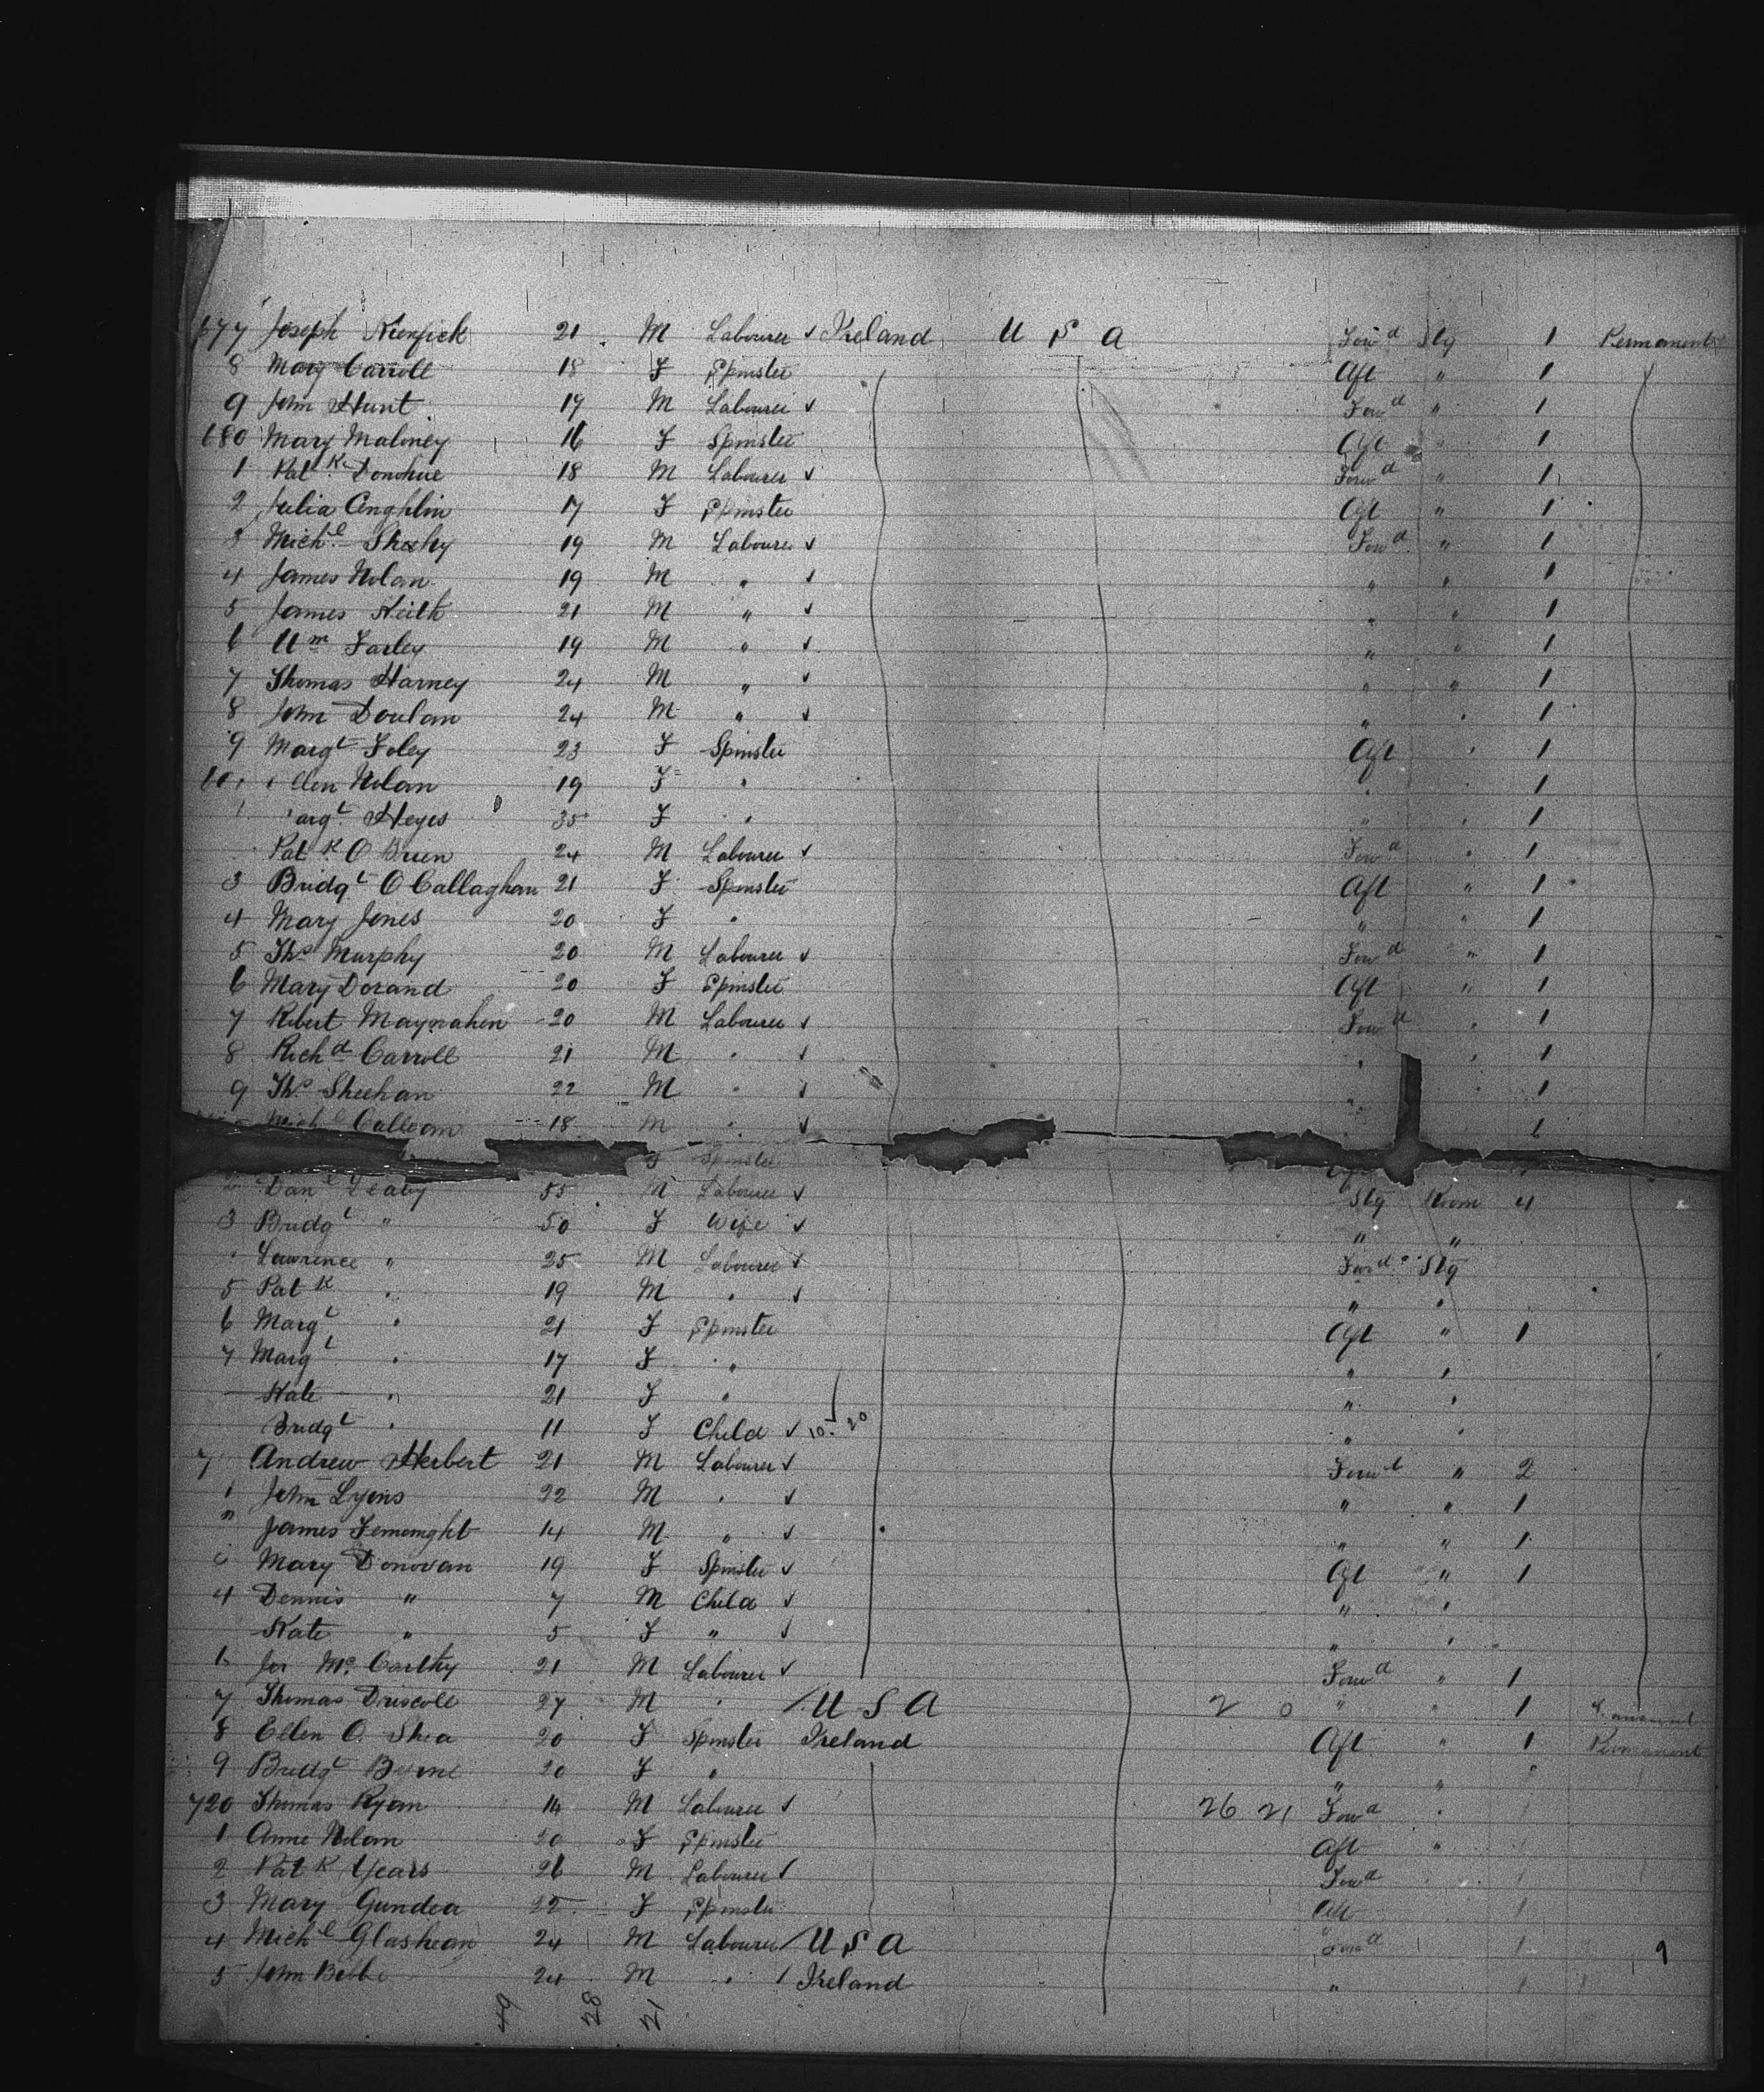 677 Joseph Kienfick 21 M Labourer ✓ Ireland U S A Forwd Stg 1 Permanent
8 Mary Carroll 18 F Spinster Aft " 1
9 John Hunt 19 M Labourer ✓ Forwd " 1
680 Mary Maloney 16 F Spinster Aft 1
1 Patk Donohue 18 M Labourer ✓ Forwd " 1
2 Julia Anghlin 17 F Spinster Aft " 1
3 Michl Sheehy 19 M Labourer ✓ Forwd " 1
4 James Nolan 19 M " ✓ " " 1
5 James Keith 21 M " ✓ " " 1
6 Wm Farley 19 M " ✓ " " 1
7 Thomas Harney 24 M " ✓ " " 1
8 John Doulan 24 M " ✓ " " 1
9 Margt Foley 23 F Spinster Aft " 1
Ellen Nolan 19 F " " " 1
argt Heyes 35 F " " " 1
Patk O Brien 24 M Labourer ✓ Forwd " 1
3 Bridgt O Callaghan 21 F Spinster Aft " 1
4 Mary Jones 20 F " " " 1
5 Ths Murphy 20 M Labourer ✓ Forwd " 1
6 Mary Dorand 20 F Spinster Aft " 1
7 Robert Maynahen 20 M Labourer ✓ Forwd " 1
8 Richd Carroll 21 M " ✓ " " 1
9 Ths Sheehan 22 M " ✓ " " 1
Michl Calleam 18 M " ✓ " 1
F Spinster
2 Danl Leahy 55 M Labourer ✓ Stg Room 4
3 Bridgt " 50 F Wife ✓ " "
Lawrence " 25 M Labourer ✓ Forwd Stg
5 Patk " 19 M " ✓ " "
6 Margt " 21 F Spinster Aft " 1
7 Margt " 17 F " " "
Kate " 21 F " " "
Bridgt " 11 F Child ✓ 10 - 20 " "
7 Andrew Herbert 21 M Labourer ✓ Forwd " 2
1 John Lyons 22 M " ✓ " " 1
James 14 M " ✓ " " 1
Mary Donovan 19 F Spinster ✓ Aft " 1
4 Dennis " 7 M Child ✓ " "
Kate " 5 F " ✓ " "
6 Jos McCarthy 21 M Labourer ✓ Forwd " 1
7 Thomas Driscoll 27 M " / U S A 2 0 " " 1
8 Ellen O. Shea 20 F Spinster Ireland Aft " 1 Permanent
9 Bridgt Byrne 20 F " " "
720 Thomas Ryan 14 M Labourer ✓ 26 21 Forwd "
1 Anne Nolan 20 F Spinster Aft "
2 Patk Years 26 M Labourer ✓ Forwd
3 Mary Gundea 22 F Spinster Aft 1
4 Michl Glashean 24 M Labourer / U S A Forwd 1 9
5 John 24 M " / Ireland " 1
49 28 21